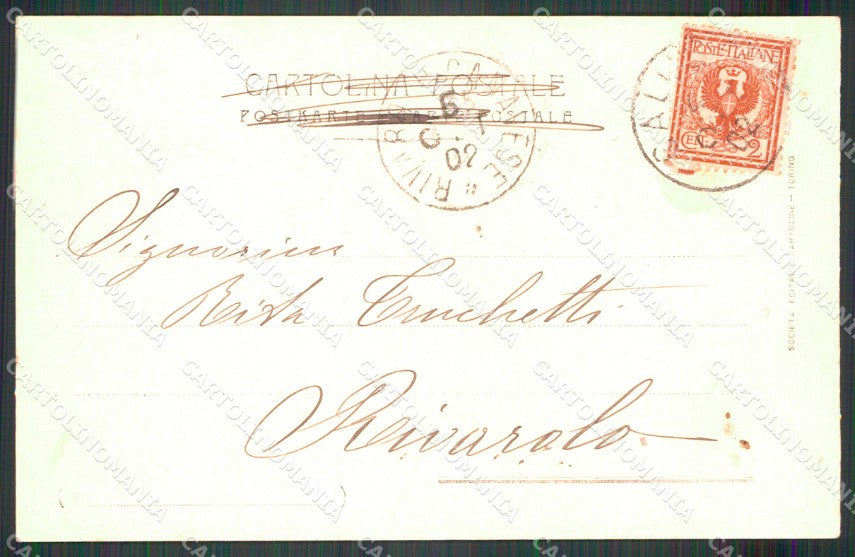 CARTOLINA POSTALE
POSTKARTE — CARTE POSTALE
POSTE·ITALIANE
CENT 2
RIVAROLO CANAVESE
6
02
02
Signorina
Rita
Rivarolo
SOCIETÀ EDITRICE CARTOLINE — TORINO
CARTOLINOMANIA